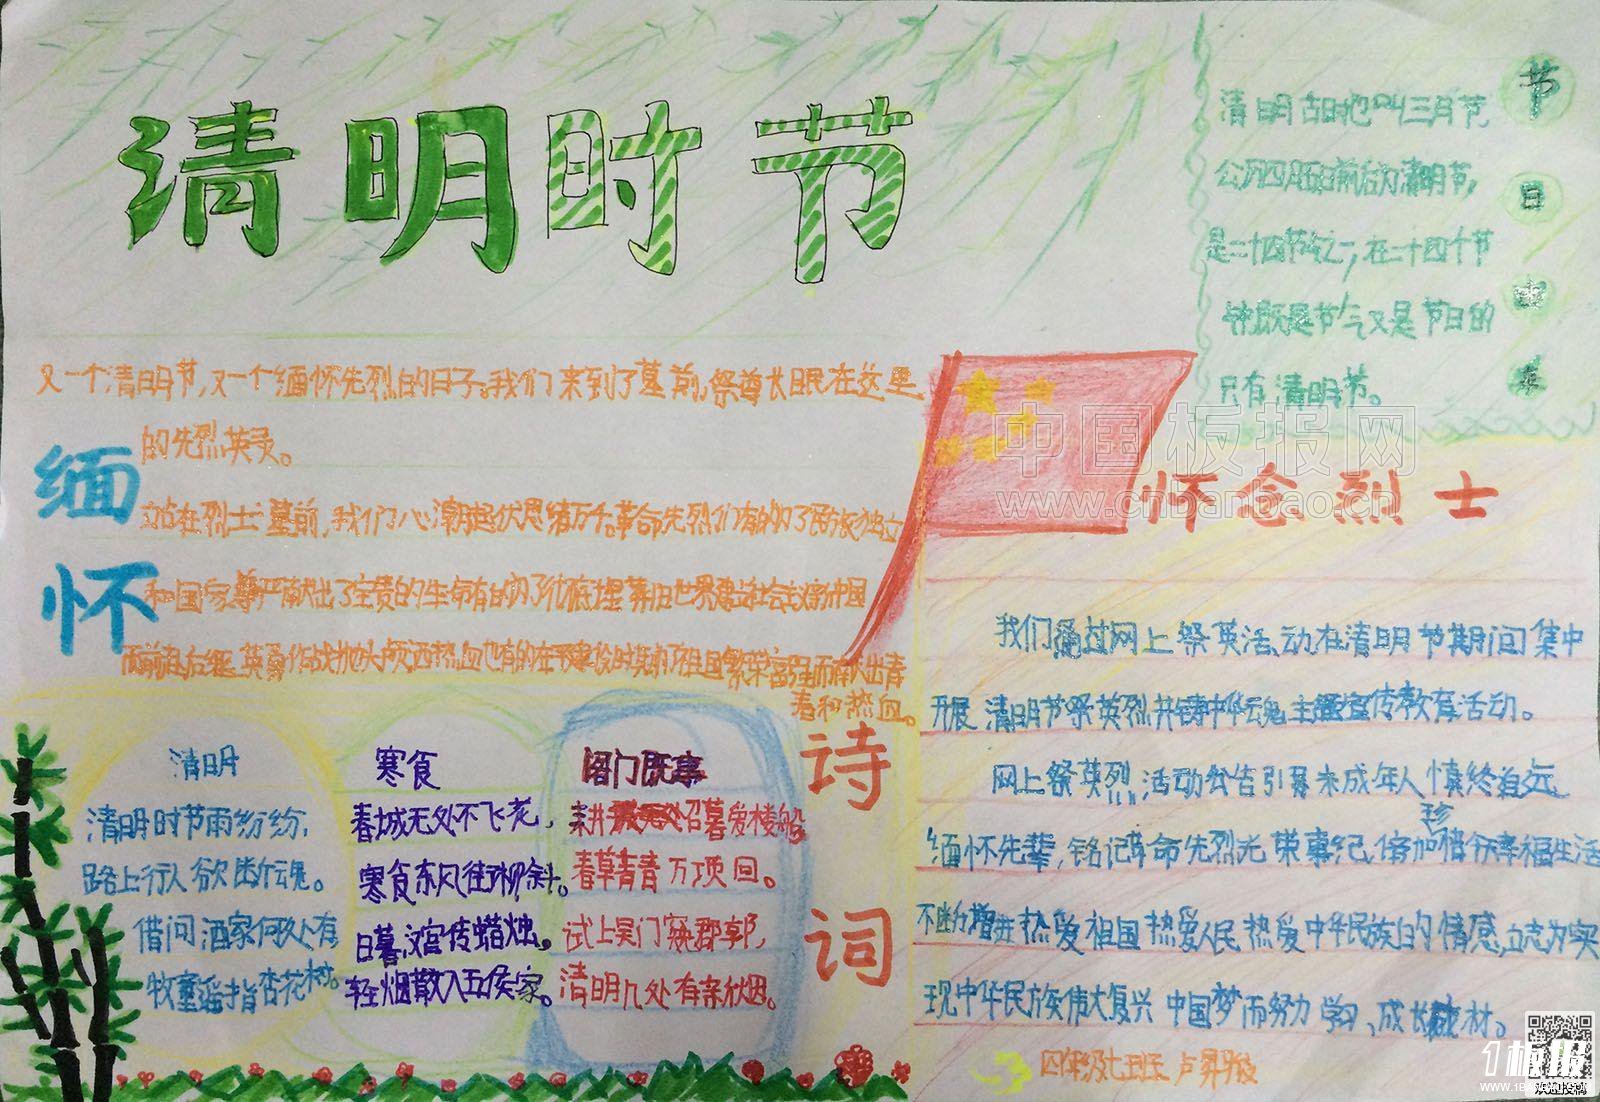 清明时节
节日由来
清明古时也叫三月节
公历四月五日前后为清明节,
是二十四节气之一,在二十四个节
气中既是节气又是节日的
只有清明节。
又一个清明节,又一个缅怀先烈的日子。我们来到了墓前,祭奠长眠在这里
的先烈英灵。
缅怀
站在烈士墓前,我们心潮起伏思绪万千。革命先烈们有的为了民族独立
和国家尊严献出了宝贵的生命有的为了
而前赴后继英勇作战抛头颅洒热血也有的在
祖国繁荣富强而献出青
春和热血。
中国板报网
www.cnbanbao.cn
怀念烈士
我们通过网上祭英活动在清明节期间集中
开展清明节祭英烈共铸中华魂主题宣传教育活动。
网上祭英烈活动公告引导未成年人慎终追远
珍
缅怀先辈,铭记革命先烈光荣事纪,倍加惜今幸福生活
不断力增进热爱祖国热爱人民热爱中华民族的情感,立志为实
现中华民族伟大复兴中国梦而努力学习、成长成材。
四年级七班
诗词
清明
清明时节雨纷纷,
路上行人欲断魂。
借问酒家何处有
牧童遥指杏花树。
寒食
春城无处不飞花,
寒食东风往御柳斜。
日暮汉宫传蜡烛。
轻烟散入五侯家。
阊门既事
耕 召募爱楼船
春草青青万项回。
试上吴门窥郡郭,
清明几处有亲伙烟。
1板报
WWW.1BANBAO.COM
欢迎投稿